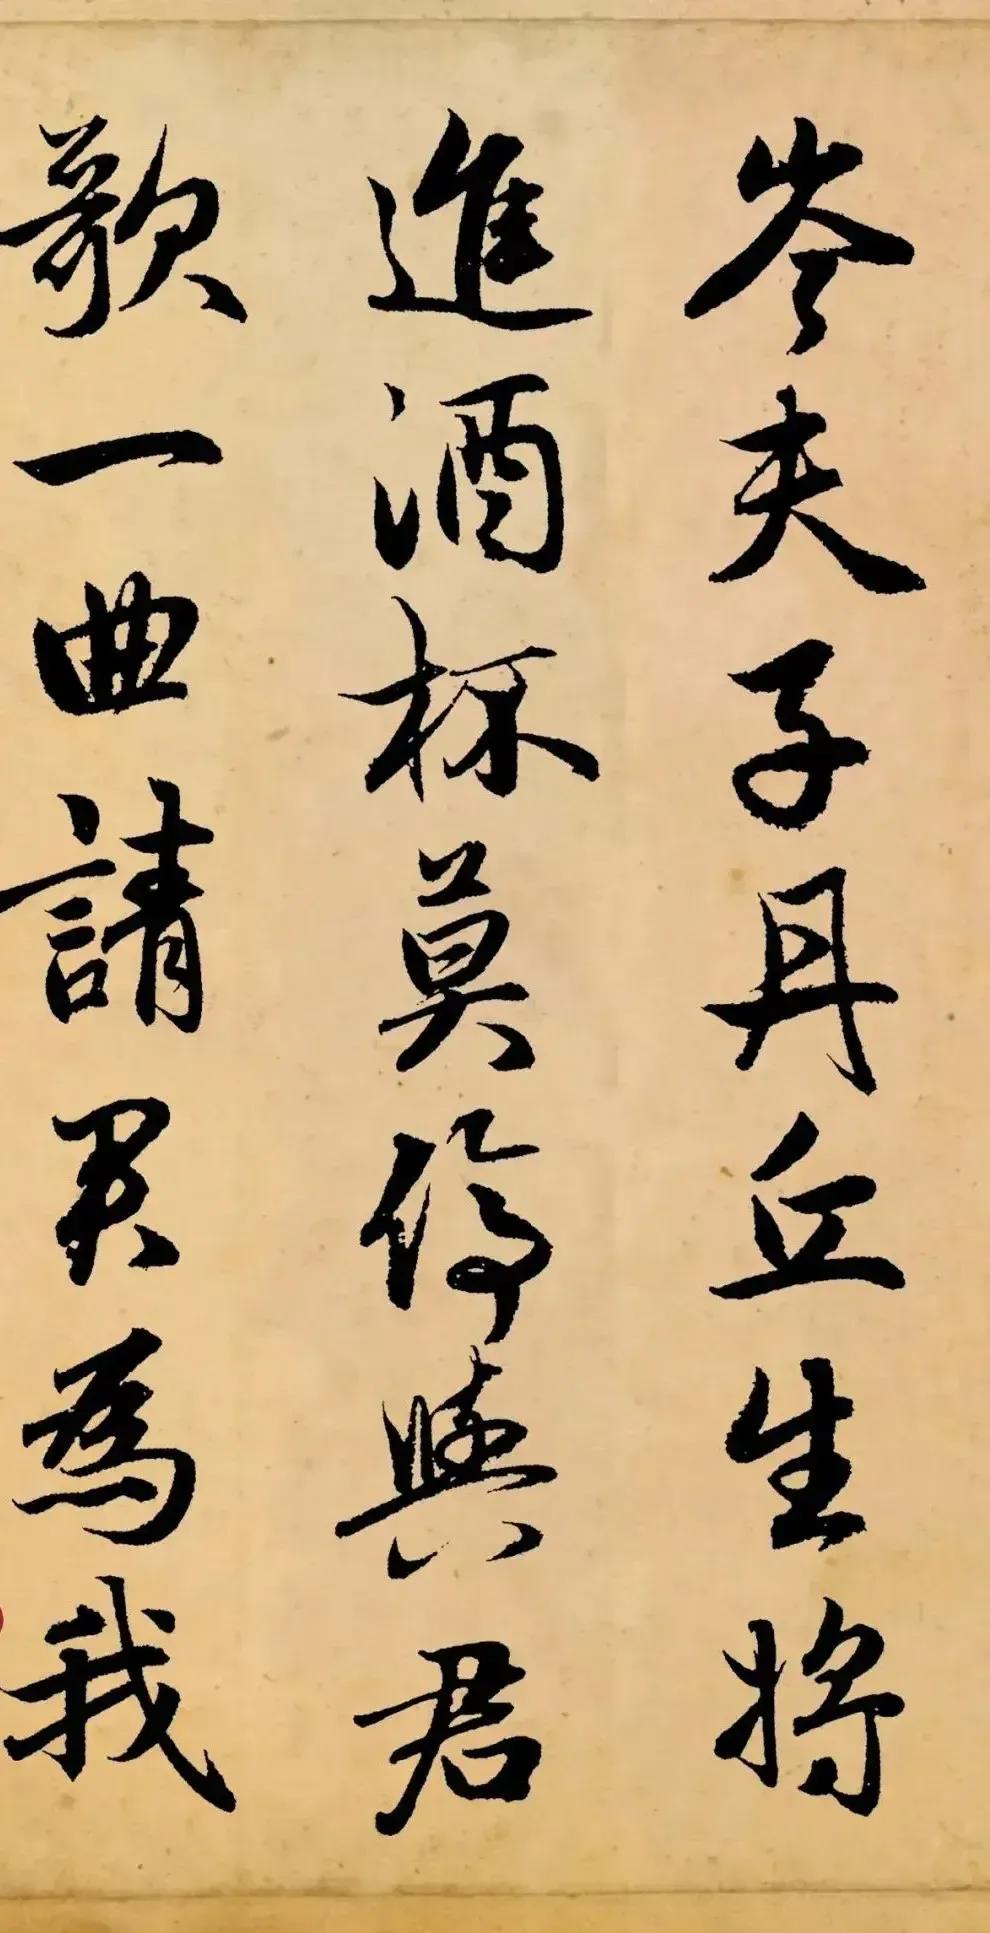 岑夫子丹丘生將
進酒杯莫停與君
歌一曲請君為我